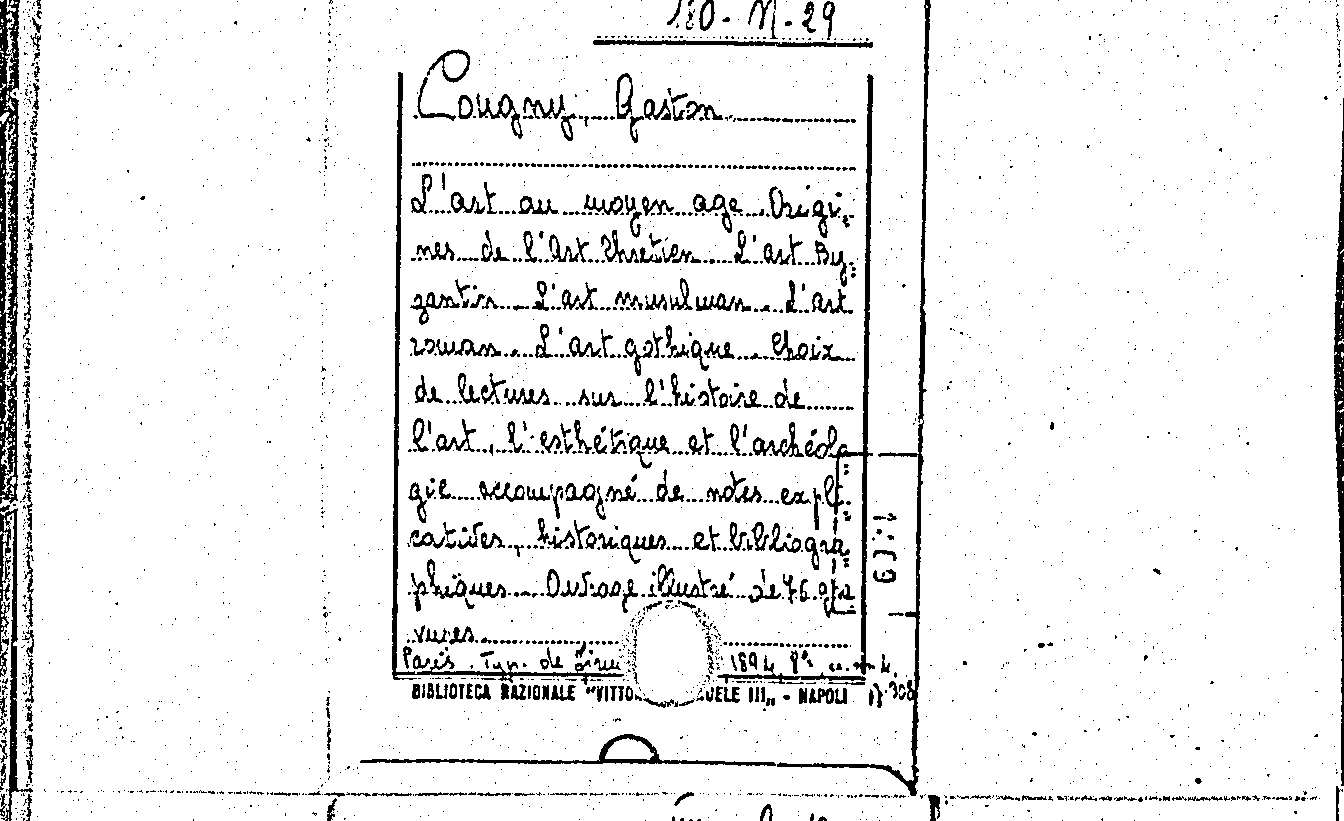 180-N-29
Cougny, Gaston
L'art au moyen age. Origi-
nes de l'Art Chretien. L'art By-
zantin. L'art musulman. L'art
roman. L'art gothique. Choix
de lectures sur l'histoire de
l'art, l'esthétique et l'archéolo
gie accompagné de notes expli-
catives, historiques et bibliogra
phiques. Ouvrage illustré de 76 gra
vures.
Paris. Typ. de 1894 8°
BIBLIOTECA NAZIONALE "VITTO UELE III„ - NAPOLI